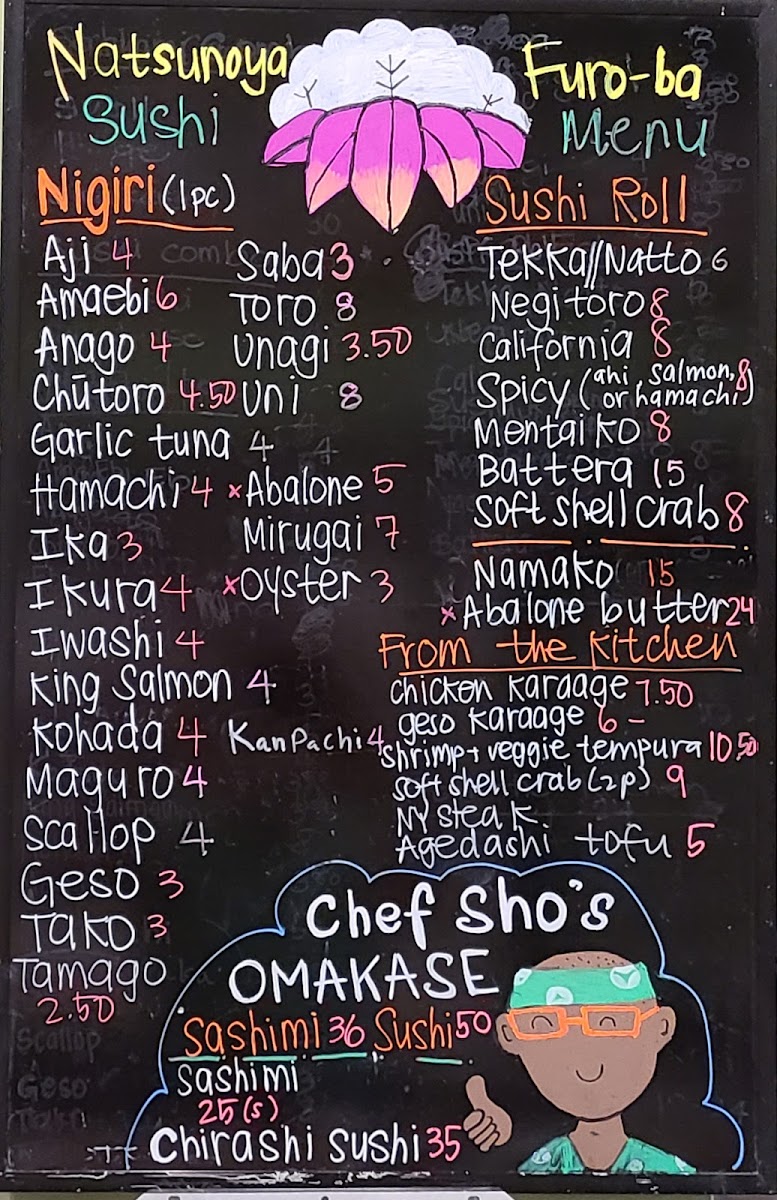 Natsunoya
Sushi
Furo-ba
Menu
Nigiri (1pc)
Aji 4
Amaebi 6
Anago 4
Chūtoro 4.50
Garlic tuna 4
Hamachi 4
Ika 3
Ikura 4
Iwashi 4
King Salmon 4
Kohada 4
Maguro 4
Scallop 4
Geso 3
Tako 3
Tamago
2.50
Saba 3
Toro 8
Unagi 3.50
Uni 8
x Abalone 5
Mirugai 7
x Oyster 3
KanPachi 4
Sushi Roll
Tekka//Natto 6
Negitoro 8
California 8
Spicy (ahi, salmon, 8
or hamachi)
Mentaiko 8
Battera 15
Soft shell crab 8
Namako 15
x Abalone butter 24
From the Kitchen
chicken karaage 7.50
geso karaage 6 -
shrimp + veggie tempura 10.50
soft shell crab (2p) 9
NY steak
Agedashi tofu 5
Chef Sho's
OMAKASE
Sashimi 36 Sushi 50
sashimi
25 (s)
Chirashi sushi 35
Scallop
Geso
Tako